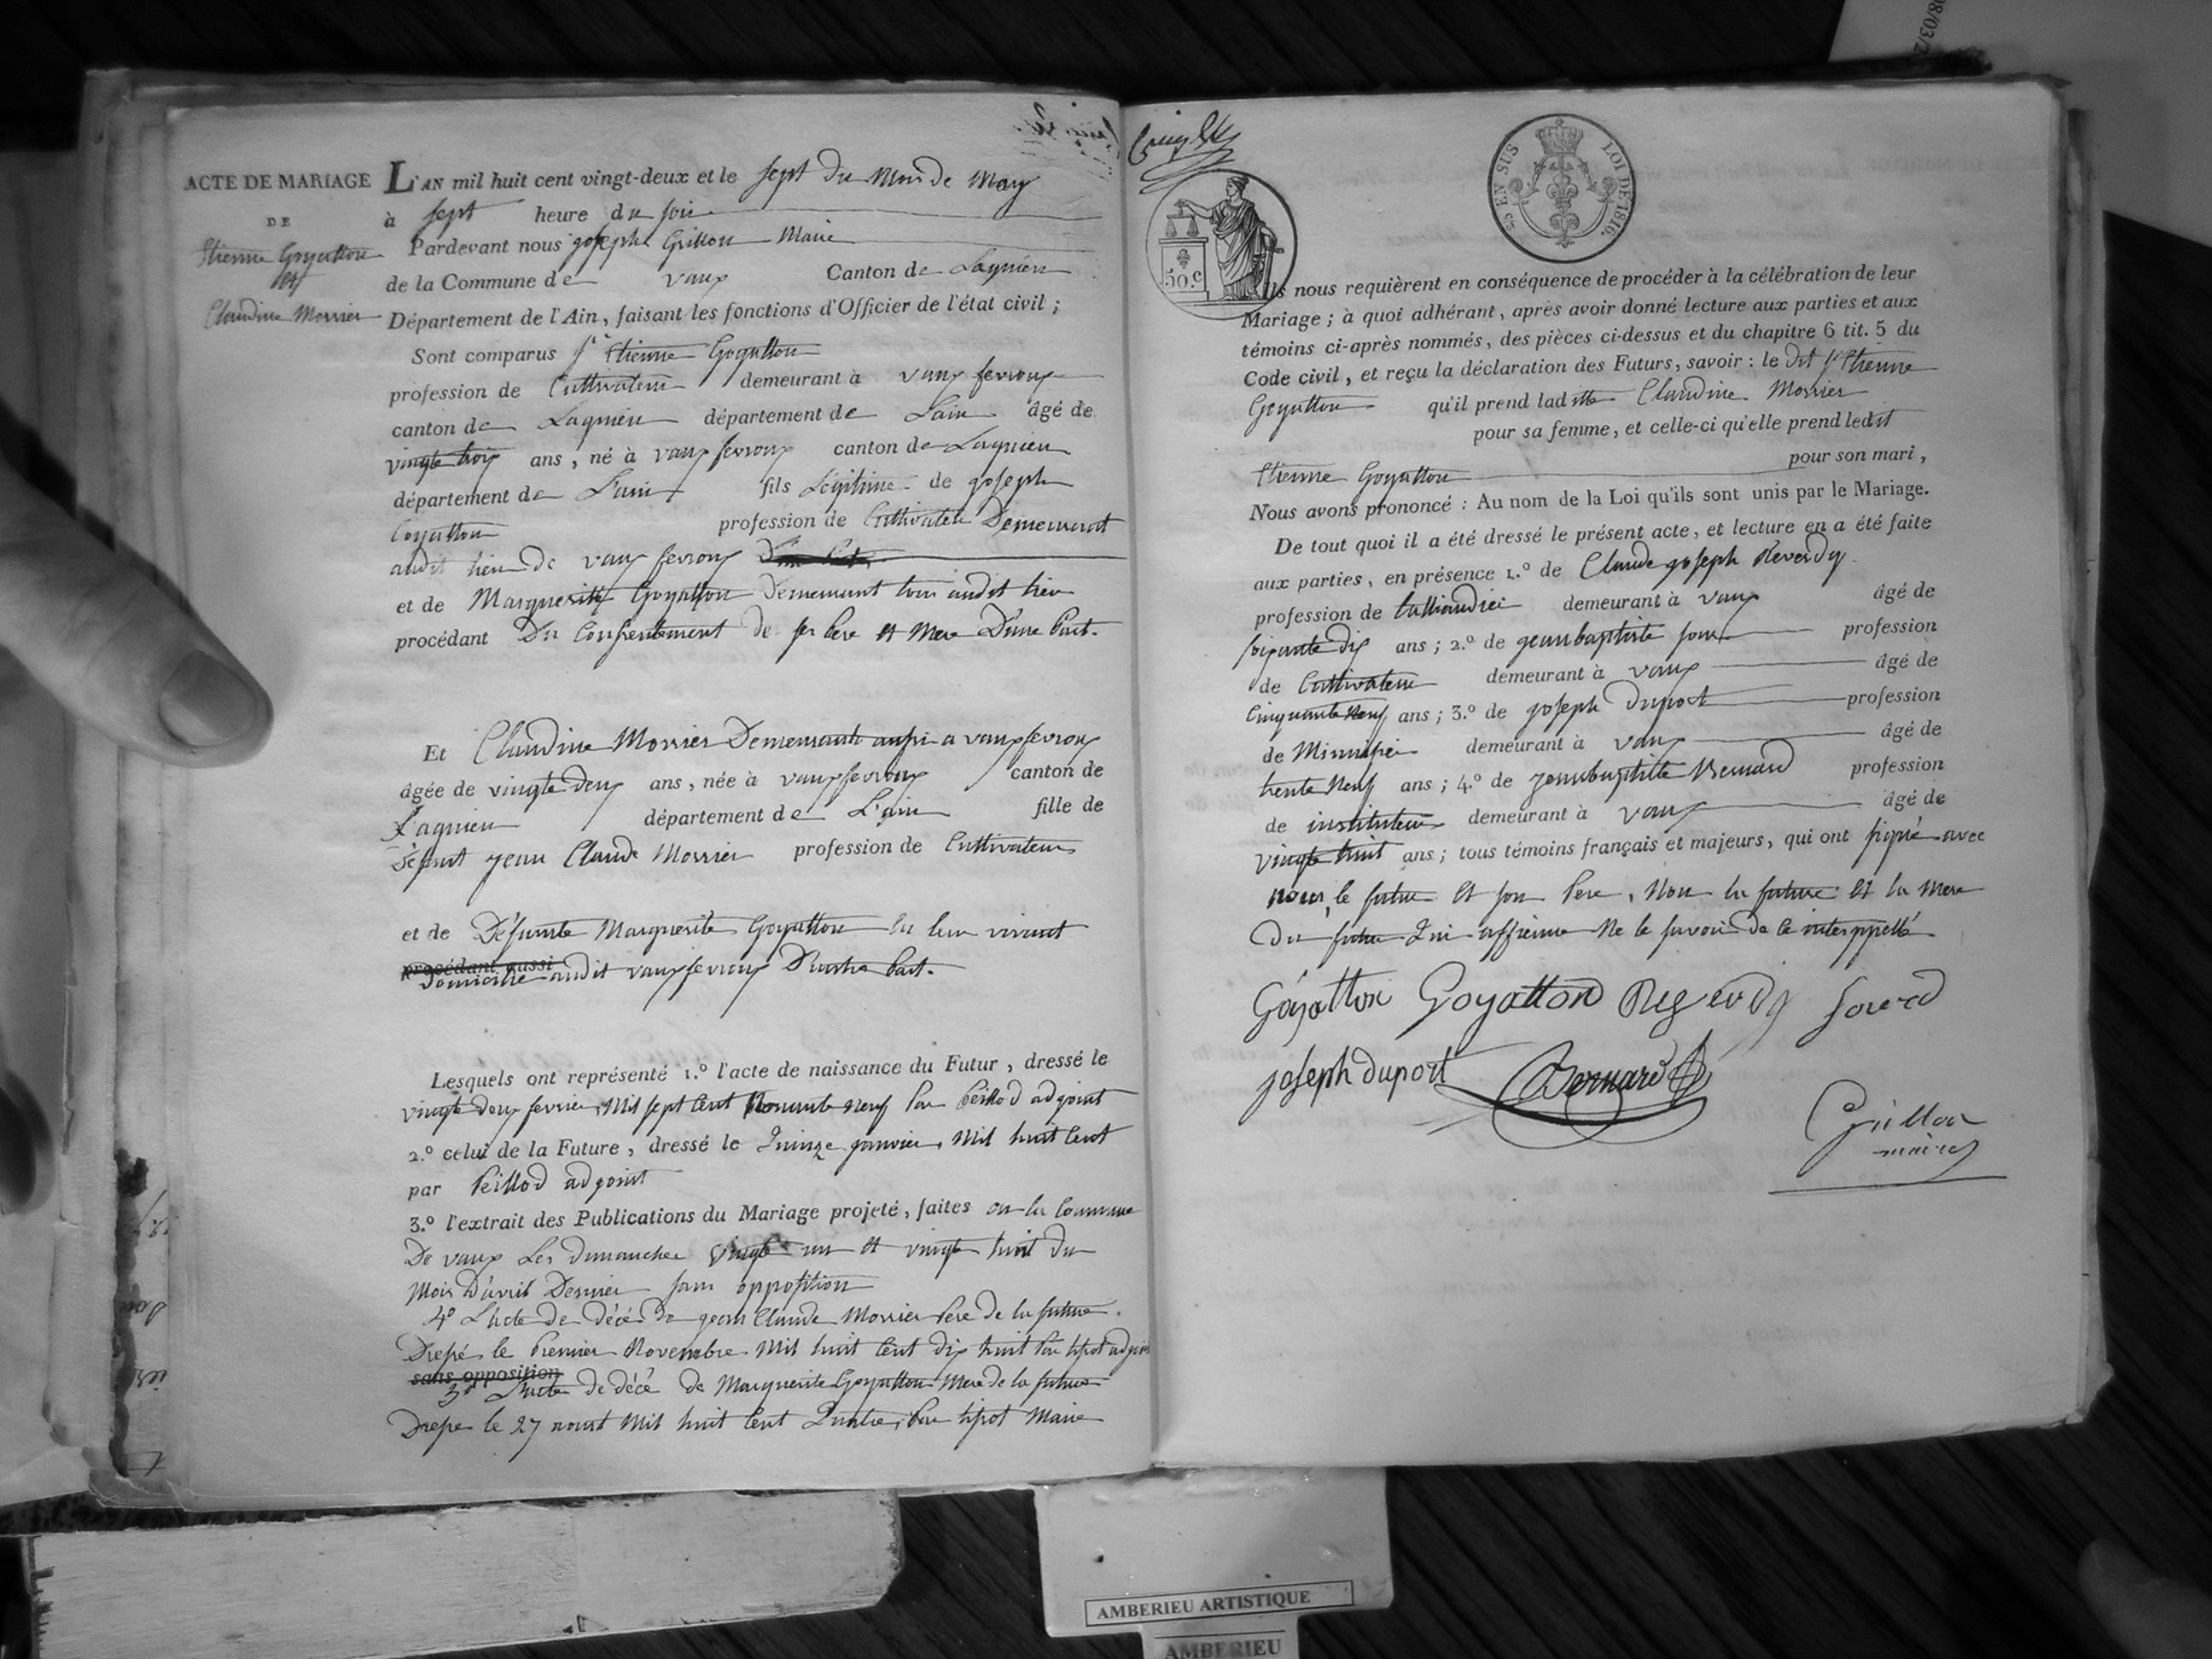 ACTE DE MARIAGE
DE
Etienne Goyatton
et
Claudine Morrier
L'AN mil huit cent vingt-deux et le sept du Mois de May
à sept heure du soir
Pardevant nous joseph Grillon Maire
de la Commune de vaux Canton de Lagnieu
Département de l'Ain, faisant les fonctions d'Officier de l'état civil ;
Sont comparus Sr Etienne Goyatton
profession de Cultivateur demeurant à vaux fevroux
canton de Lagnieu département de Lain âgé de
vingte trois ans, né à vaux fevroux canton de Lagnieu
département de L'ain fils Légitime de joseph
Goyatton profession de Cultivateur Demeurant
audit lieu de vaux fevroux
et de Marguerite Goyatton Demeurant tous audit lieu
procédant Du Consentement de ses Pere et Mere D'une Part.
Et Claudine Morrier Demeurante aussi a vaux fevroux
âgée de vingte deux ans, née à vaux fevroux canton de
Lagnieu département de L'ain fille de
Défunt jean Claude Morrier profession de Cultivateur
et de Défunte Marguerite Goyatton de leur vivant
procédant aussi
Domicilié audit vaux fevroux D'autre Part.
Lesquels ont représenté 1.º l'acte de naissance du Futur, dressé le
vingte deux fevrier, Mil sept Cent Nonante neuf Par Peillod adjoint
2.º celui de la Future, dressé le Quinze janvier, Mil huit Cent
par Peillod adjoint
3.º l'extrait des Publications du Mariage projeté, faites en la Commune
De vaux Les dimanches vingte un et vingte huit du
Mois D'avril Dernier sans opposition
4º L'acte de décé de jean Claude Morrier Pere de la future.
Dressé le Premier Novembre Mil huit Cent dix huit Par tipot adjoint
sans opposition
5º L'acte de décé de Marguerite Goyatton Mere de la future
Dressé le 27 aoust Mil huit Cent Quatre, Par tipot Maire
25 EN SUS
LOI DE 1816.
50.c
Ils nous requièrent en conséquence de procéder à la célébration de leur
Mariage ; à quoi adhérant, après avoir donné lecture aux parties et aux
témoins ci-après nommés, des pièces ci-dessus et du chapitre 6 tit. 5 du
Code civil, et reçu la déclaration des Futurs, savoir : le dit Sr Etienne
Goyatton qu'il prend laditte Claudine Morrier
pour sa femme, et celle-ci qu'elle prend ledit
Etienne Goyatton pour son mari,
Nous avons prononcé : Au nom de la Loi qu'ils sont unis par le Mariage.
De tout quoi il a été dressé le présent acte, et lecture en a été faite
aux parties, en présence 1.º de Claude joseph Reverdy
profession de demeurant à vaux âgé de
soixante dix ans ; 2.º de jean baptiste profession
de Cultivateur demeurant à vaux âgé de
Cinquante Neuf ans ; 3.º de joseph Duport profession
de Minusier demeurant à vaux âgé de
trente Neuf ans ; 4.º de jean baptiste Bernard profession
de instituteur demeurant à vaux âgé de
vingte huit ans ; tous témoins français et majeurs, qui ont signé avec
nous, le futur et son Pere, Non la future et la Mere
du futur Qui affirme Ne le savoir de ce interppellé
Goyatton Goyatton Regerdy
joseph duport Bernard
Grillon
maire
AMBERIEU ARTISTIQUE
AMBERIEU